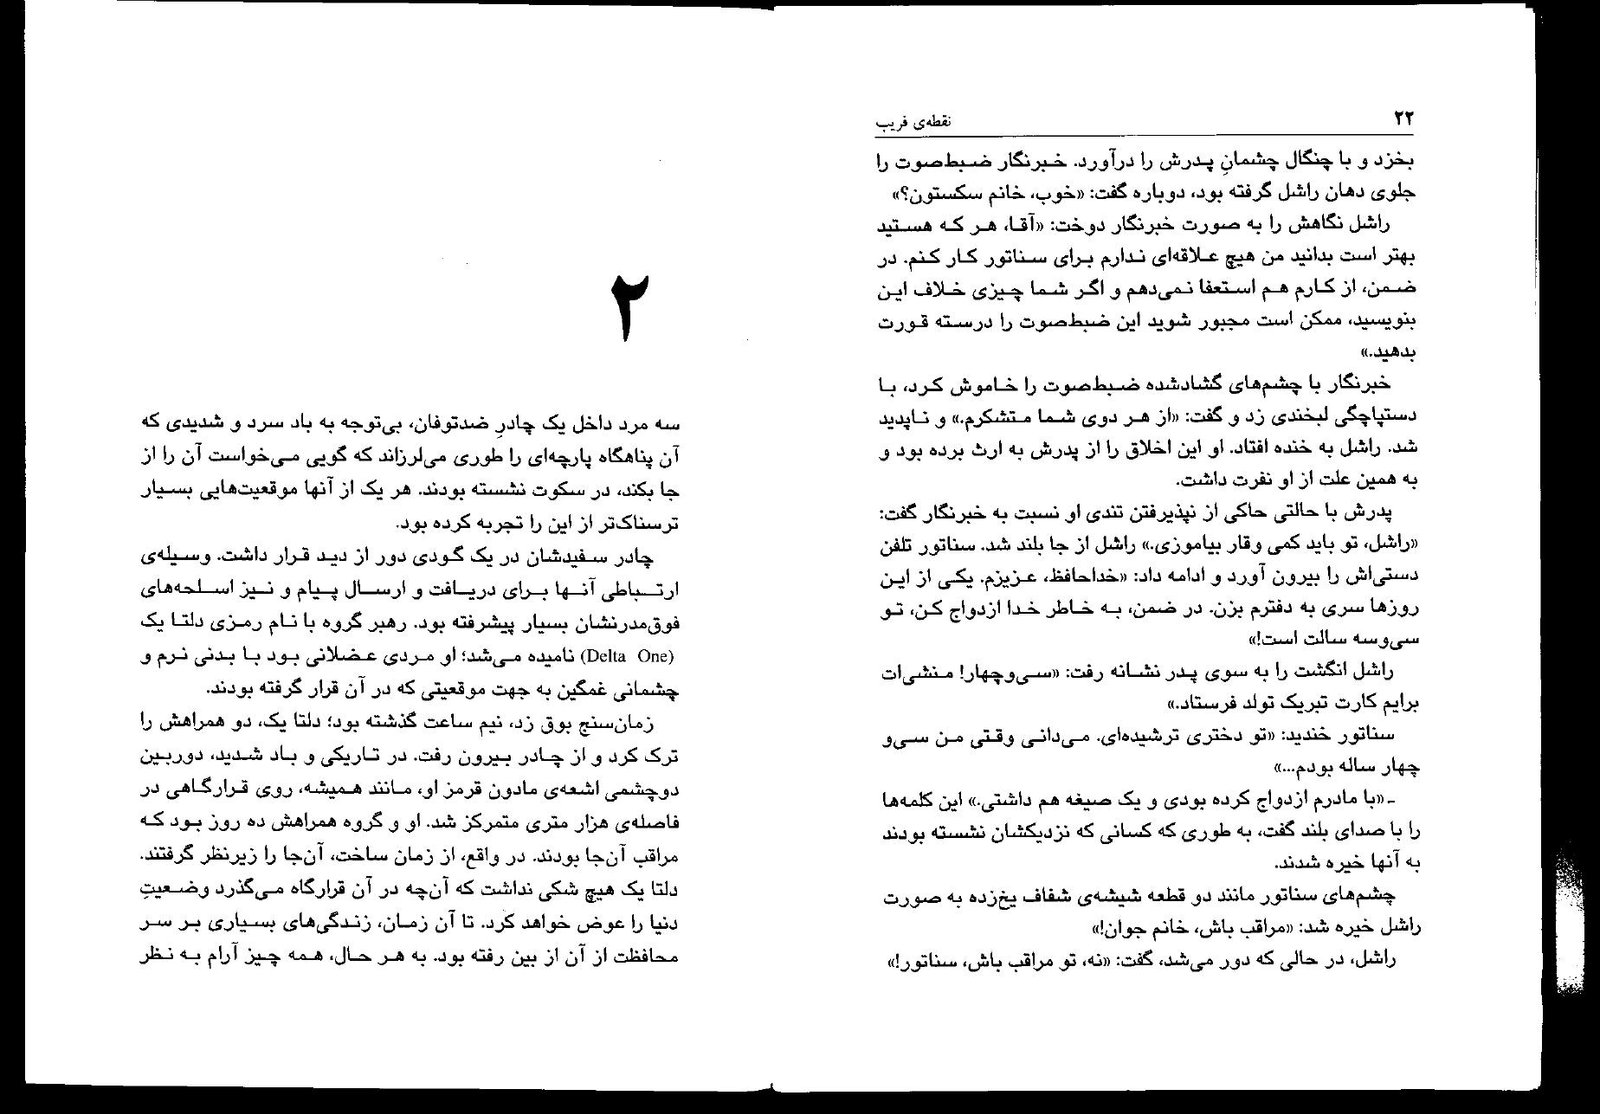 ۲۲
نقطه‌ی فریب
بخزد و با چنگال چشمانِ پدرش را درآورد. خبرنگار ضبط‌صوت را
جلوی دهان راشل گرفته بود، دوباره گفت: «خوب، خانم سکستون؟»
راشل نگاهش را به صورت خبرنگار دوخت: «آقا، هر که هستید
بهتر است بدانید من هیچ علاقه‌ای ندارم برای سناتور کار کنم. در
ضمن، از کارم هم استعفا نمی‌دهم و اگر شما چیزی خلاف این
بنویسید، ممکن است مجبور شوید این ضبط‌صوت را درسته قورت
بدهید.»
خبرنگار با چشم‌های گشادشده ضبط‌صوت را خاموش کرد، با
دستپاچگی لبخندی زد و گفت: «از هر دوی شما متشکرم.» و ناپدید
شد. راشل به خنده افتاد. او این اخلاق را از پدرش به ارث برده بود و
به همین علت از او نفرت داشت.
پدرش با حالتی حاکی از نپذیرفتن تندی او نسبت به خبرنگار گفت:
«راشل، تو باید کمی وقار بیاموزی.» راشل از جا بلند شد. سناتور تلفن
دستی‌اش را بیرون آورد و ادامه داد: «خداحافظ، عزیزم. یکی از این
روزها سری به دفترم بزن. در ضمن، به خاطر خدا ازدواج کن، تو
سی‌وسه سالت است!»
راشل انگشت را به سوی پدر نشانه رفت: «سی‌وچهار! منشی‌ات
برایم کارت تبریک تولد فرستاد.»
سناتور خندید: «تو دختری ترشیده‌ای. می‌دانی وقتی من سی‌و
چهار ساله بودم...»
ـ «با مادرم ازدواج کرده بودی و یک صیغه هم داشتی.» این کلمه‌ها
را با صدای بلند گفت، به طوری که کسانی که نزدیکشان نشسته بودند
به آنها خیره شدند.
چشم‌های سناتور مانند دو قطعه شیشه‌ی شفاف یخ‌زده به صورت
راشل خیره شد: «مراقب باش، خانم جوان!»
راشل، در حالی که دور می‌شد، گفت: «نه، تو مراقب باش، سناتور!»
۲
سه مرد داخل یک چادرِ ضدتوفان، بی‌توجه به باد سرد و شدیدی که
آن پناهگاه پارچه‌ای را طوری می‌لرزاند که گویی می‌خواست آن را از
جا بکند، در سکوت نشسته بودند. هر یک از آنها موقعیت‌هایی بسیار
ترسناک‌تر از این را تجربه کرده بود.
چادر سفیدشان در یک گودی دور از دید قرار داشت. وسیله‌ی
ارتباطی آنها برای دریافت و ارسال پیام و نیز اسلحه‌های
فوق‌مدرنشان بسیار پیشرفته بود. رهبر گروه با نام رمزی دلتا یک
(Delta One) نامیده می‌شد؛ او مردی عضلانی بود با بدنی نرم و
چشمانی غمگین به جهت موقعیتی که در آن قرار گرفته بودند.
زمان‌سنج بوق زد، نیم ساعت گذشته بود؛ دلتا یک، دو همراهش را
ترک کرد و از چادر بیرون رفت. در تاریکی و باد شدید، دوربین
دوچشمی اشعه‌ی مادون قرمز او، مانند همیشه، روی قرارگاهی در
فاصله‌ی هزار متری متمرکز شد. او و گروه همراهش ده روز بود که
مراقب آن‌جا بودند. در واقع، از زمان ساخت، آن‌جا را زیرنظر گرفتند.
دلتا یک هیچ شکی نداشت که آن‌چه در آن قرارگاه می‌گذرد وضعیتِ
دنیا را عوض خواهد کرد. تا آن زمان، زندگی‌های بسیاری بر سر
محافظت از آن از بین رفته بود. به هر حال، همه چیز آرام به نظر